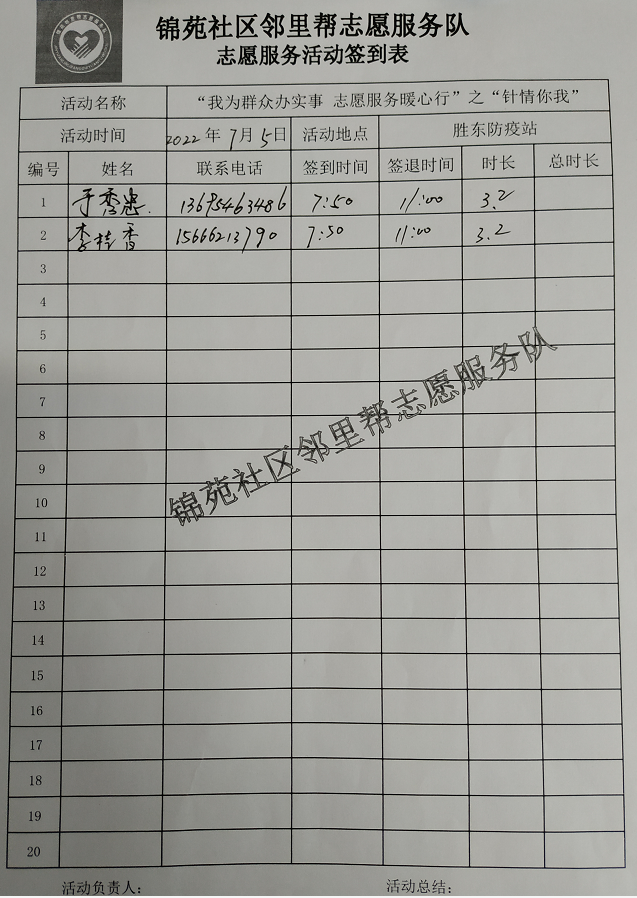 锦苑社区邻里帮志愿服务队
志愿服务活动签到表
活动名称 “我为群众办实事 志愿服务暖心行”之“针情你我”
活动时间 2022年7月5日 活动地点 胜东防疫站
编号 姓名 联系电话 签到时间 签退时间 时长 总时长
1 于秀忠 13695463486 7:50 11:00 3.2
2 李桂香 15666213790 7:50 11:00 3.2
3
4
5
6
7
8
9
10
11
12
13
14
15
16
17
18
19
20
锦苑社区邻里帮志愿服务队
活动负责人: 活动总结: